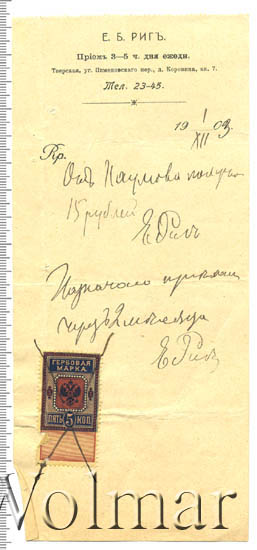 Е. Б. РИГЪ.
Пріемъ 3—5 ч. дня ежедн.
Тверская, уг. Пименовскаго пер., д. Коровина, кв. 7.
Тел. 23-45.
19 I/XII 03
Rp.
Отъ Наумова получ
15 рублей
Е Ригъ
Назначено
черезъ 2 мѣсяца
Е Ригъ
ГЕРБОВАЯ
МАРКА
ПЯТЬ 5 КОП.
Wolmar